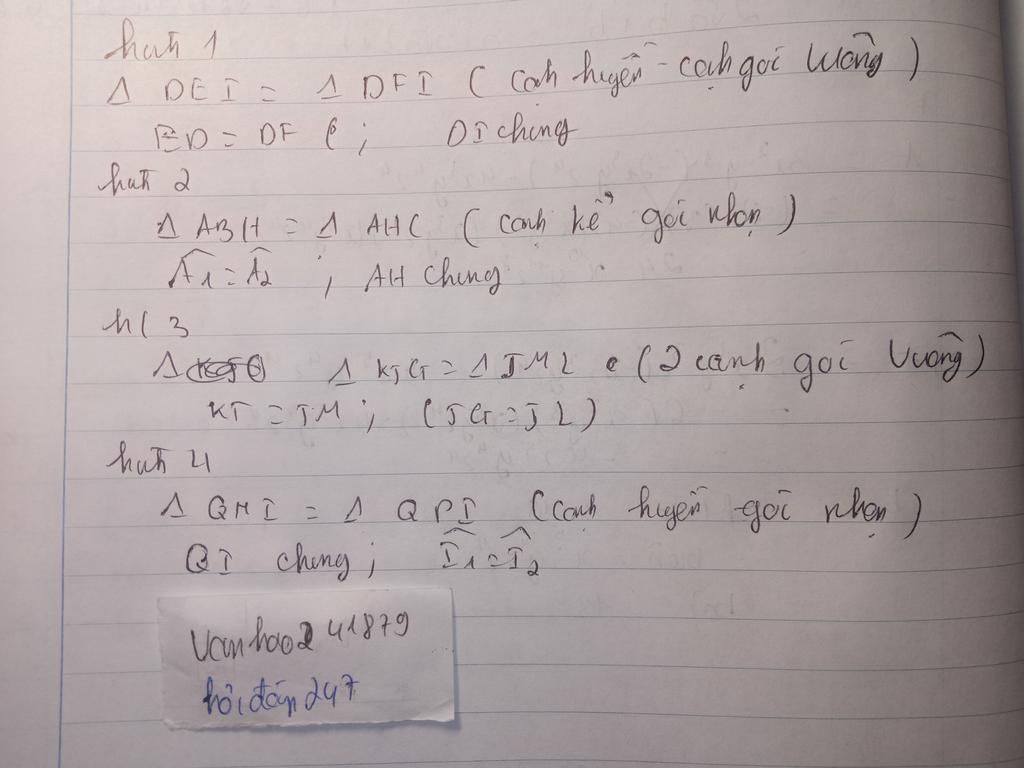 hình 1
Δ DEI = Δ DFI ( cạnh huyền - cạnh góc vuông )
ED = DF ; DI chung
hình 2
Δ ABH = Δ AHC ( cạnh kề góc nhọn )
Â1 = Â2 ; AH chung
h( 3
Δ Δ KJG = Δ JML ( 2 cạnh góc vuông )
KJ = JM ; ( JG = JL )
hình 4
Δ QMI = Δ QPI ( cạnh huyền góc nhọn )
QI chung ; Î1 = Î2
Vanhao241879
hỏi đáp 247